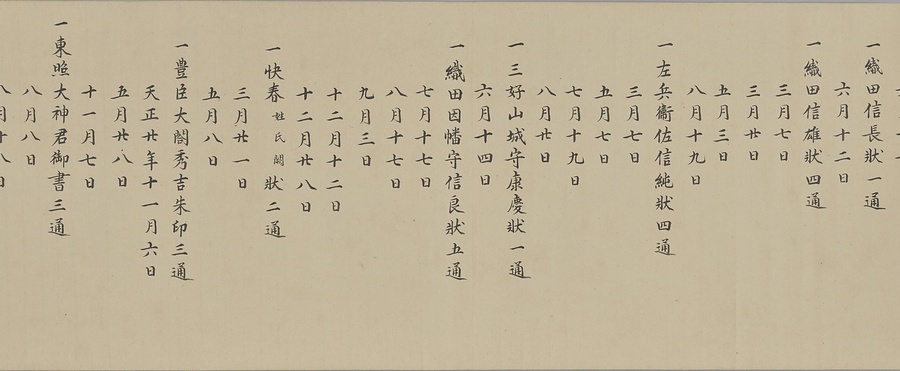 一織田信長狀一通
六月十二日
一織田信雄狀四通
三月七日
三月廿日
五月三日
八月十九日
一左兵衞佐信純狀四通
三月七日
五月七日
七月十九日
八月廿日
一三好山城守康慶狀一通
六月十四日
一織田因幡守信良狀五通
七月十七日
八月十七日
九月三日
十二月十二日
十二月廿八日
一快春姓氏闕狀二通
三月廿一日
五月八日
一豊臣大閤秀吉朱印三通
天正廿年十一月六日
五月廿八日
十一月七日
一東照大神君御書三通
八月八日
八月十八日